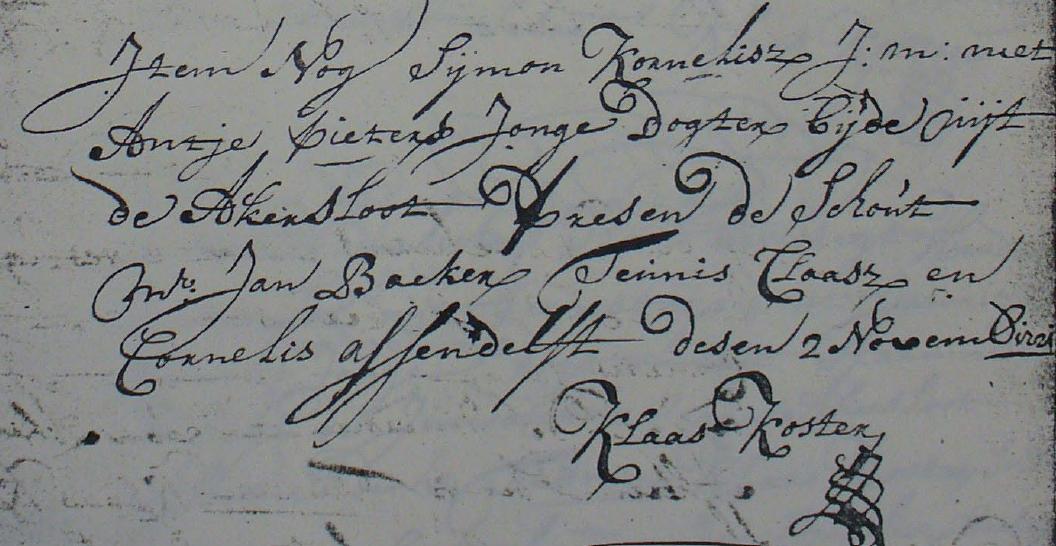 Item Nog Sijmon Kornelisz J: m: met
Antje Pieters Jonge Dogter bijde uijt
de Akersloot Presen de Schout
Mr. Jan Backer Teunis Claasz en
Cornelis assendelft desen 2 Novem
Klaas Koster